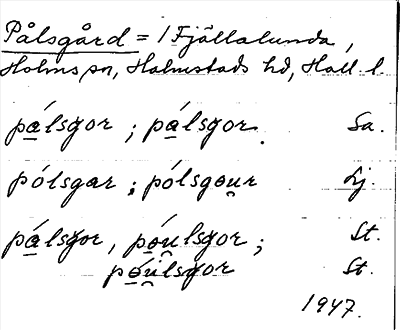 Pålsgård = 1 Fjällalunda,
Holms sn, Halmstads hd, Hall. l.
pá̲lsgor ; pá̲lsgor. Sa.
pólsgar ; pólsgou̯r Lj.
pá̲lsgor, pó̲u̯lsgor ; St.
pó̲u̯lsgor St.
1947.